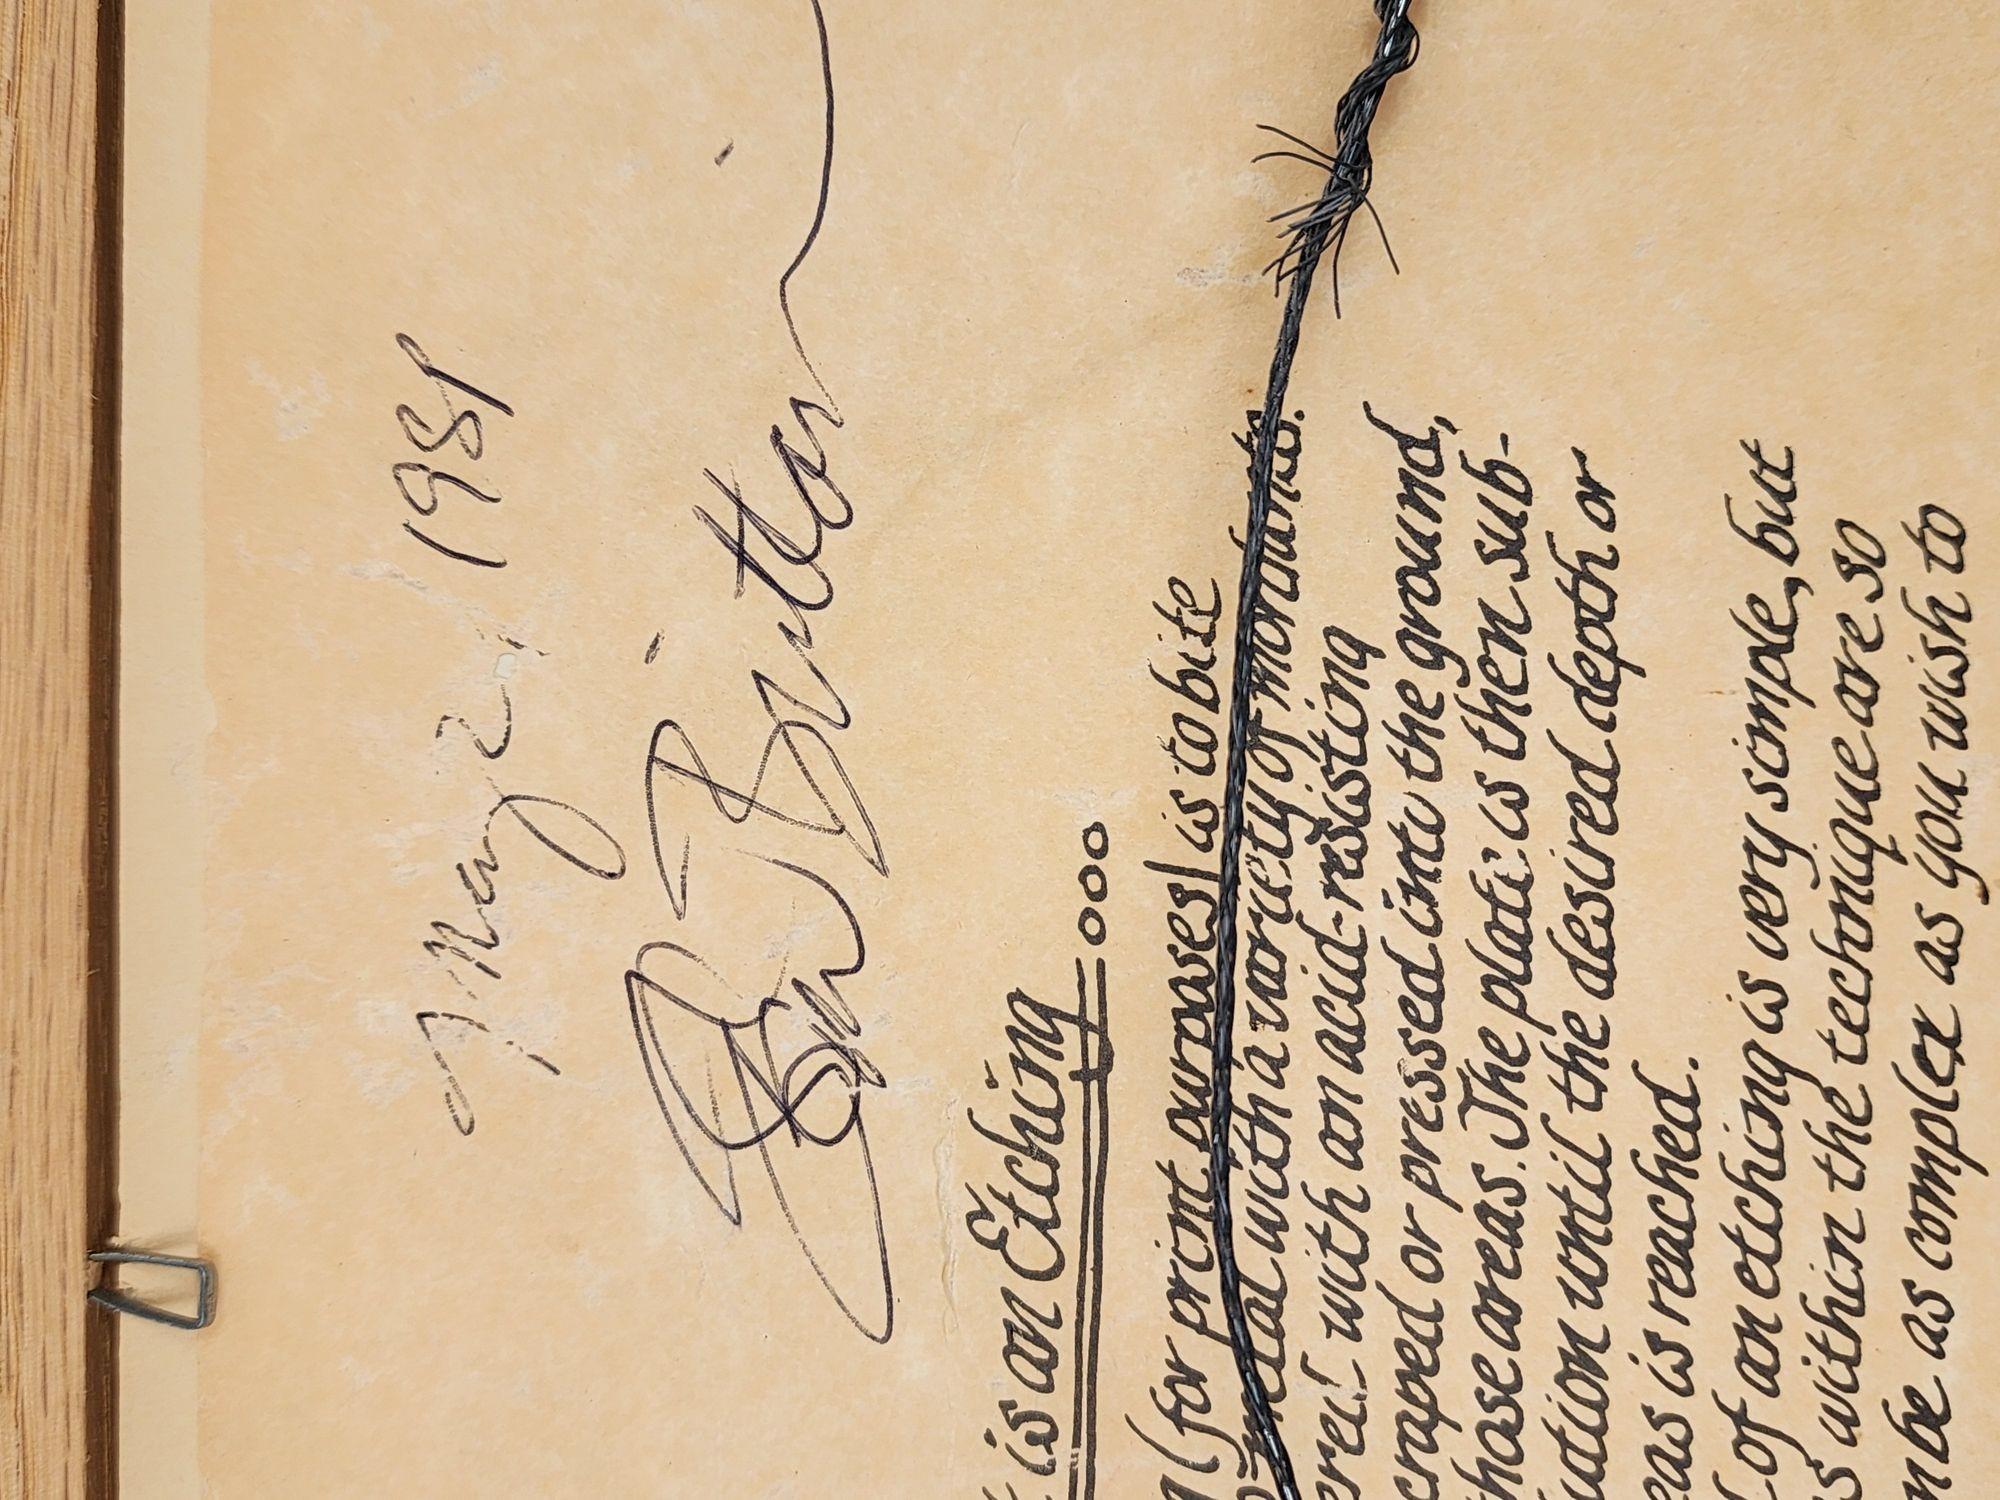 May 2, 1981
Britton
is an Etching
(for print purposes) is to bite
metal with a variety of mordants.
with an acid-resisting
or pressed into the ground,
areas. The plate is then sub-
until the desired depth or
is reached.
of an etching is very simple, but
within the technique are so
be as complex as you wish to